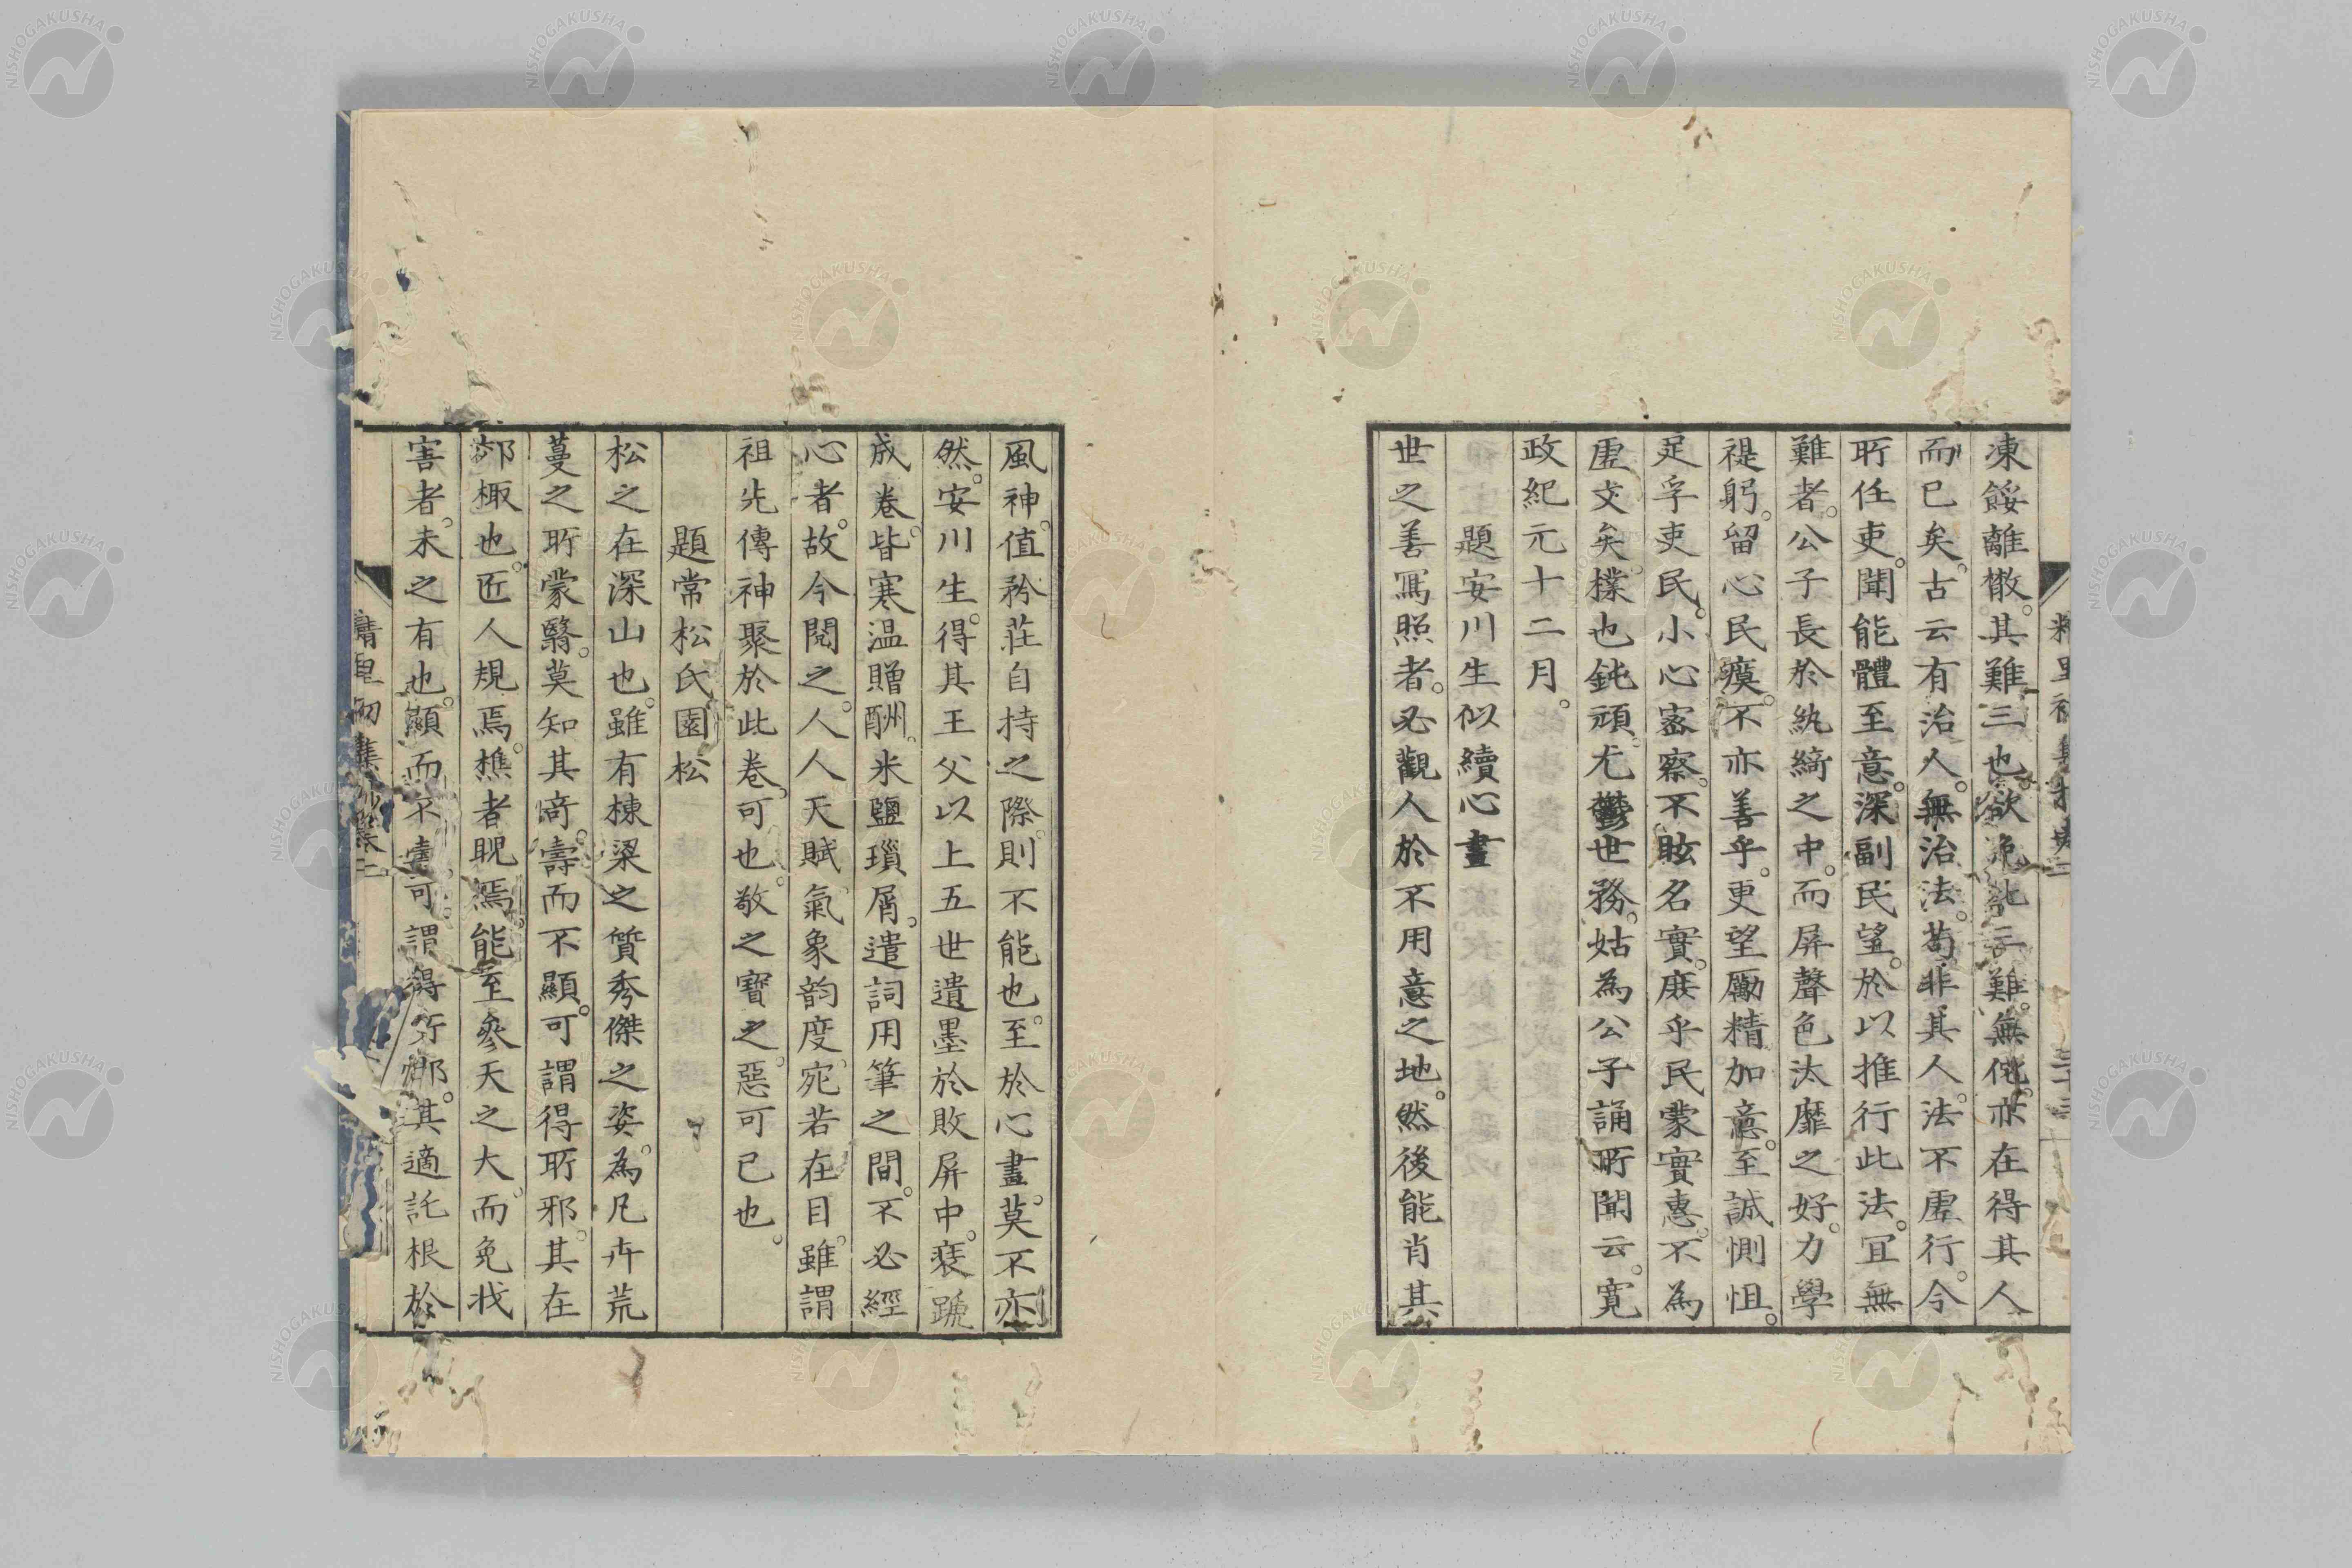 凍餒離散。其難三也。欲免此三難。無佗。亦在得其人
而已矣。古云有治人。無治法。苟非其人。法不虛行。今
所任吏。聞能體至意。深副民望。於以推行此法。冝無
難者。公子長於紈綺之中。而屏聲色汰靡之好。力學
禔躬。留心民瘼。不亦善乎。更望勵精加意。至誠惻怛。
足孚吏民。小心密察。不眩名實。庶乎民蒙實惠。不為
虛文矣。樸也鈍頑。尤鬱世務。姑為公子誦所聞云。寛
政紀元十二月。
題安川生似續心畫
世之善寫照者。必觀人於不用意之地。然後能肖其
風神。值矜莊自持之際。則不能也。至於心畫。莫不亦
然。安川生。得其王父以上五世遺墨於敗屏中。裒號
成卷。皆寒温贈酬。米鹽瑣屑。遣詞用筆之間。不必經
心者。故今閱之。人人天賦氣象韵度。宛若在目。雖謂
祖先傳神聚於此卷。可也。敬之寶之。惡可已也。
題常松氏園松
松之在深山也。雖有棟梁之質秀傑之姿。為凡卉荒
蔓之所蒙翳。莫知其奇。壽而不顯。可謂得所邪。其在
郊橛也。匠人規焉。樵者睨焉。能至參天之大。而免戕
害者。未之有也。顯而不壽。可謂得所邪。其適託根於
精里初集抄卷二
NISHOGAKUSHA